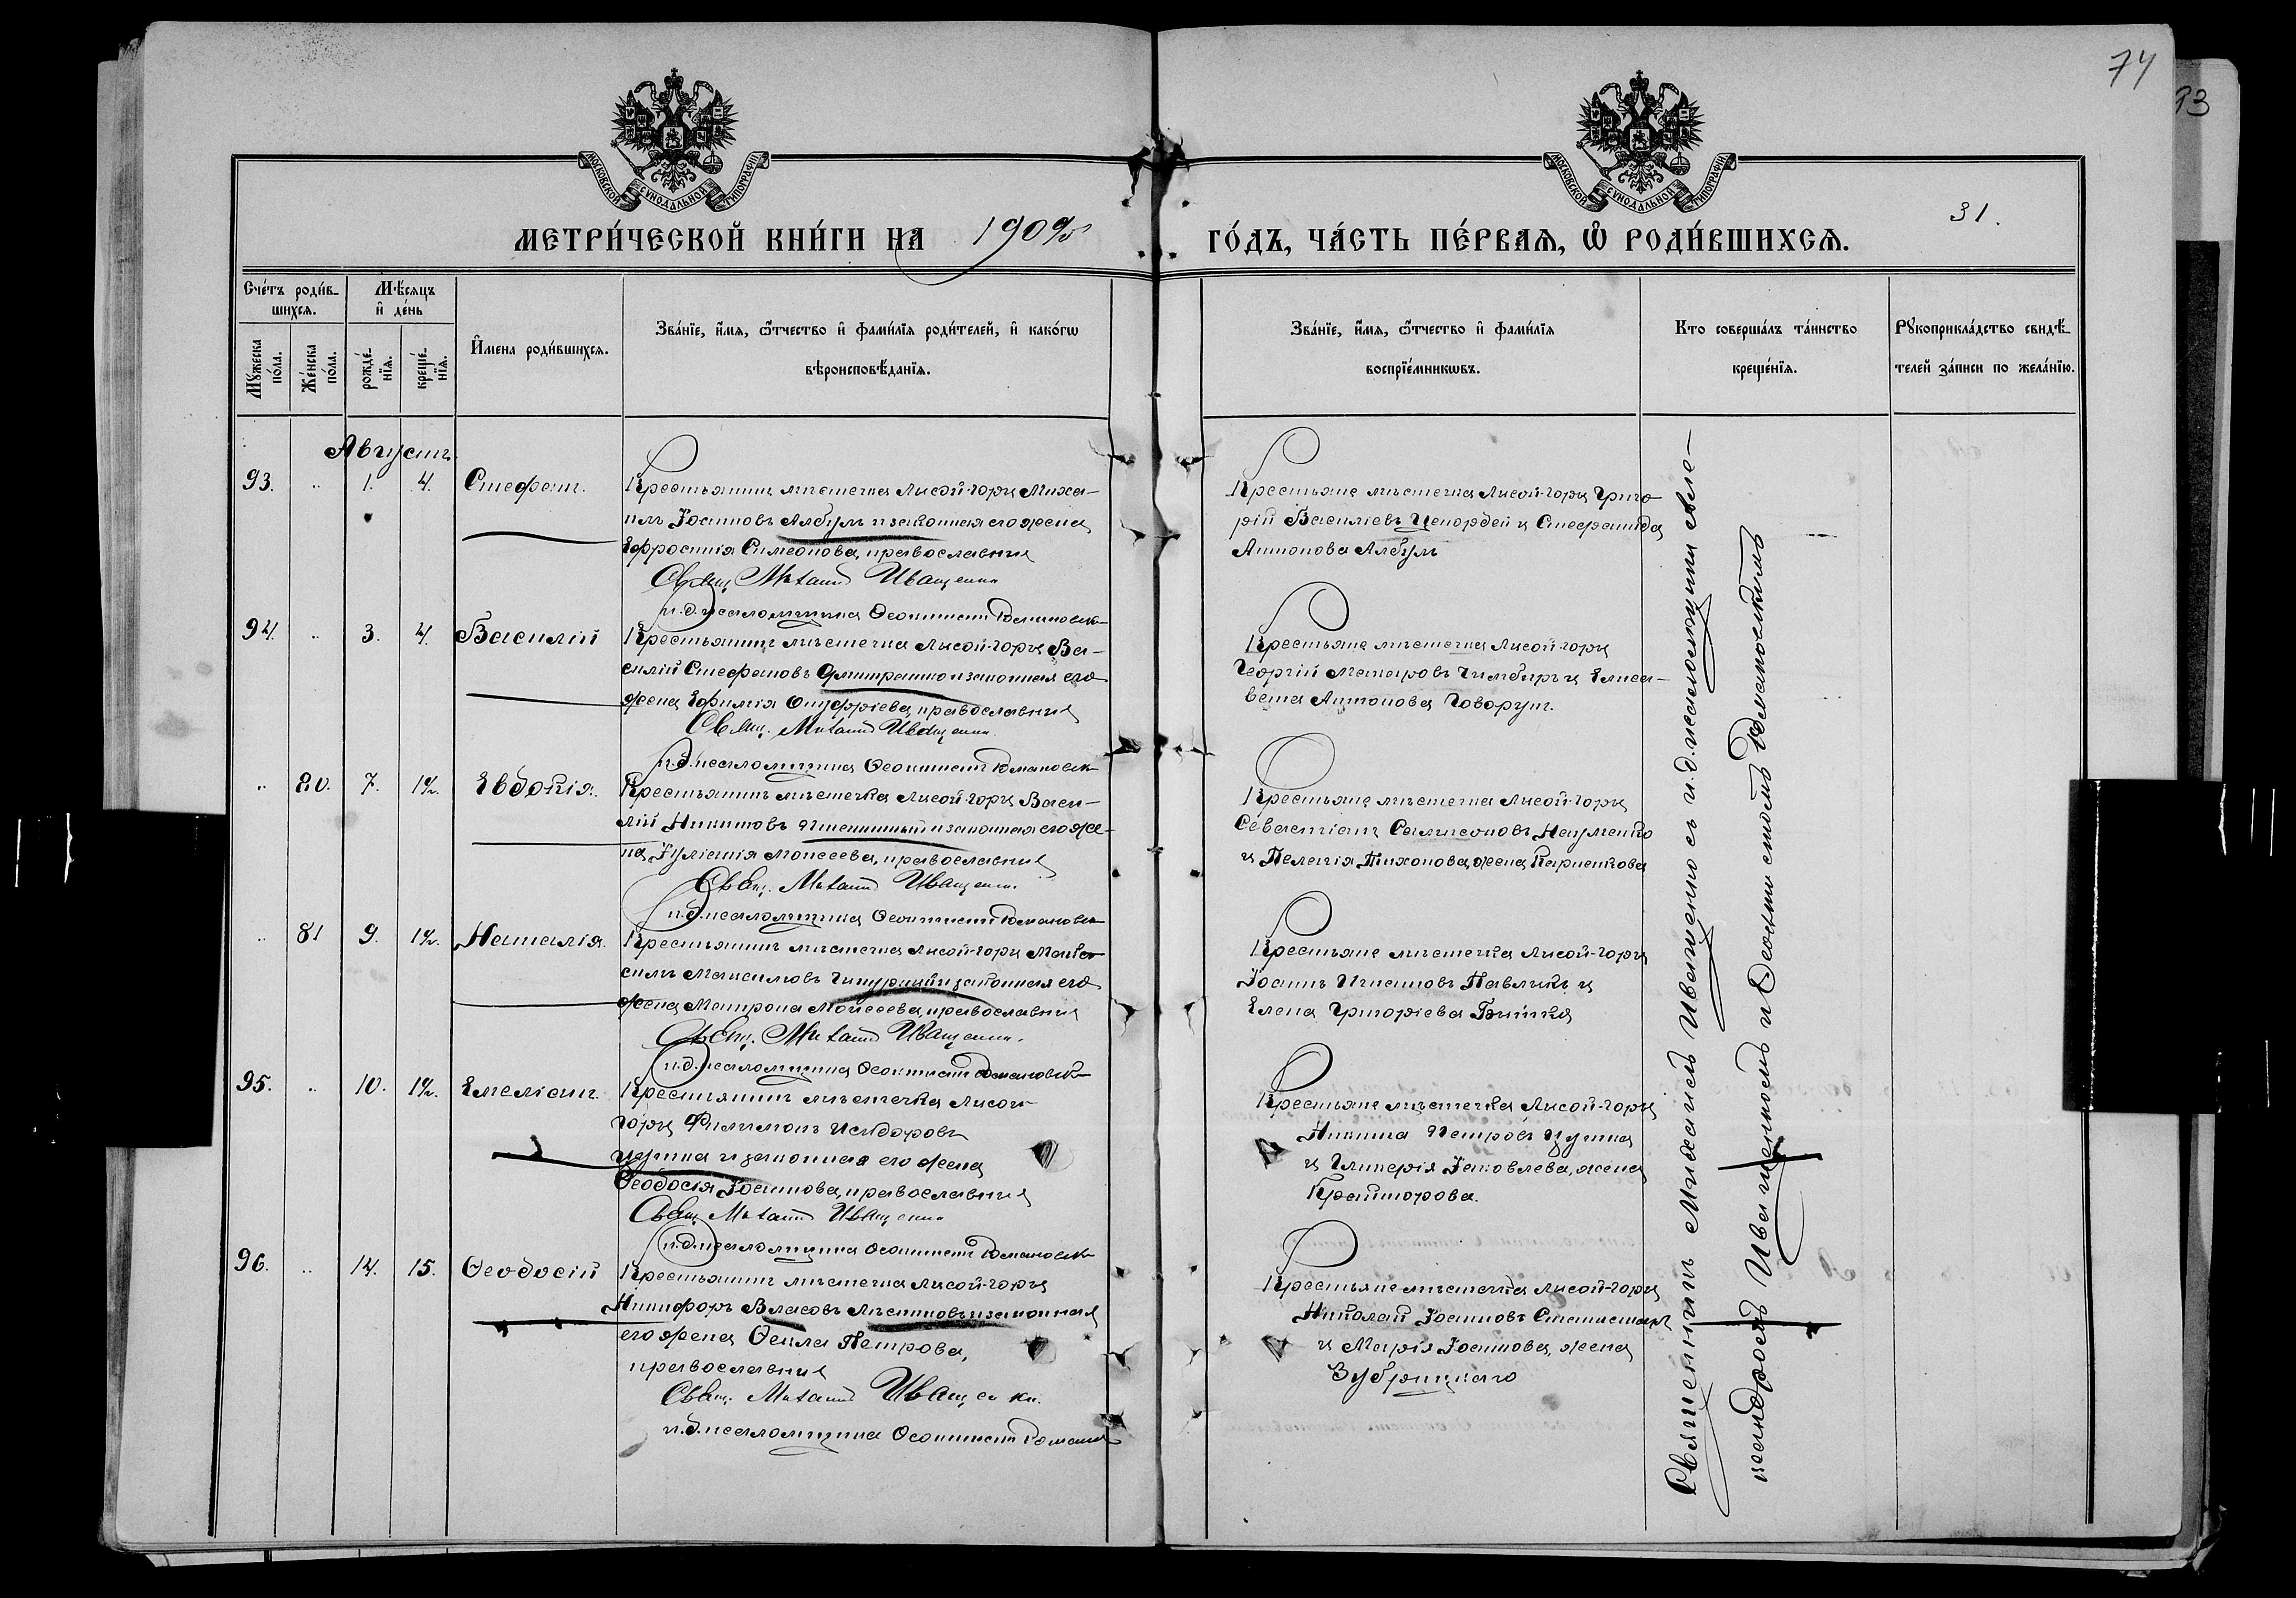 74
93
МОСКОВСКОЙ СѴНОДАЛЬНОЙ ТИПОГРАФІИ
МОСКОВСКОЙ СѴНОДАЛЬНОЙ ТИПОГРАФІИ
МЕТРИ́ЧЕСКОЙ КНИ́ГИ НА 190
ГО́ДЪ, ЧА́СТЬ ПЕ́РВАЯ, Ѽ РОДИ́ВШИХСЯ.
31.
Сче́тъ роди́в-
шихся.
Мѣ́сяцъ
и҆ де́нь
Мꙋ́жеска по́ла.
Же́нска по́ла.
рожде́-
нїя.
креще́-
нїя.
И҆́мена роди́вшихся.
Зва́нїе, и҆́мя, ѻ҆́тчество и҆ фами́лїя роди́телей, и҆ како́гѡ
вѣроисповѣ́данїя.
Зва́нїе, и҆́мя, ѻ҆́тчество и҆ фами́лїя
воспрїе́мникѡвъ.
Кто соверша́лъ та́инство
креще́нїя.
Рꙋкоприкла́дство свидѣ́-
телей за́писи по жела́нїю.
Августъ
93. „ 1. 4. Стефанъ.
Крестьянинъ мѣстечка Лысой-горы Миха-
илъ Іоанновъ Албулъ и законная его жена
Ефросинія Симеонова, православные
Свящ. Михаилъ Иващенко
и.д. псаломщика Ѳеоктистъ
Крестьяне мѣстечка Лысой-горы Григо-
рій Василіевъ и Стефанида
Антонова Албулъ
94. „ 3. 4. Василій
Крестьянинъ мѣстечка Лысой-горы Ва-
силій Стефановъ Дмитрашко и законная его
жена Ефимія Онуфріева, православные
Свящ. Михаилъ Иващенко.
и.д. псаломщика Ѳеоктистъ
Крестьяне мѣстечка Лысой-горы
Георгій Макаровъ Чимбиръ и Елиса-
вета Антонова Говорунъ.
„ 80. 7. Евдокія.
Крестьянинъ мѣстечка Лысой-горы Васи-
лій Никитовъ Пшеничный и законная его же-
на Іуліанія Моисеева, православные
Свящ. Михаилъ Иващенко.
и.д. псаломщика Ѳеоктистъ
Крестьяне мѣстечка Лысой-горы
Севастіанъ Самсоновъ Науменко
и Пелагія Тихонова, жена
„ 81 9. Наталія.
Крестьянинъ мѣстечка Лысой-горы Мак-
симъ Максимовъ и законная его
жена Матрона Моисеева, православные
Свящ. Михаилъ Иващенко.
и.д. псаломщика Ѳеоктистъ
Крестьяне мѣстечка Лысой-горы
Іоаннъ Игнатовъ Павлыкъ и
Елена Григоріева
95. „ 10. Емеліанъ.
Крестьянинъ мѣстечка Лысой-
горы Филимонъ Исидоровъ
и законная его жена
Ѳеодосія Іоаннова, православные
Свящ. Михаилъ Иващенко
и.д. псаломщика Ѳеоктистъ
Крестьяне мѣстечка Лысой-горы
Никита Петровъ
и Гликерія Іаковлева, жена
96. „ 14. 15. Ѳеодосій
Крестьянинъ мѣстечка Лысой-горы
Никифоръ Власовъ и законная
его жена Ѳекла Петрова,
православные
Свящ. Михаилъ Иващенко.
и.д. псаломщика Ѳеоктистъ
Крестьяне мѣстечка Лысой-горы
Николай Іоанновъ
и Марія Іоаннова, жена
Зубрицкаго
Священникъ Михаилъ Иващенко съ и.д. псаломщика Але-
ксандромъ Иващенкомъ и Ѳеоктистомъ